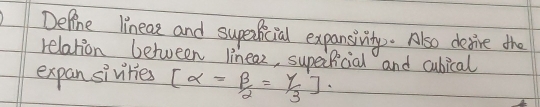 Define linear and superficial expansivity. Also derive the
relation between linear, superficial and cubical
expansivities [α = β/2 = γ/3].